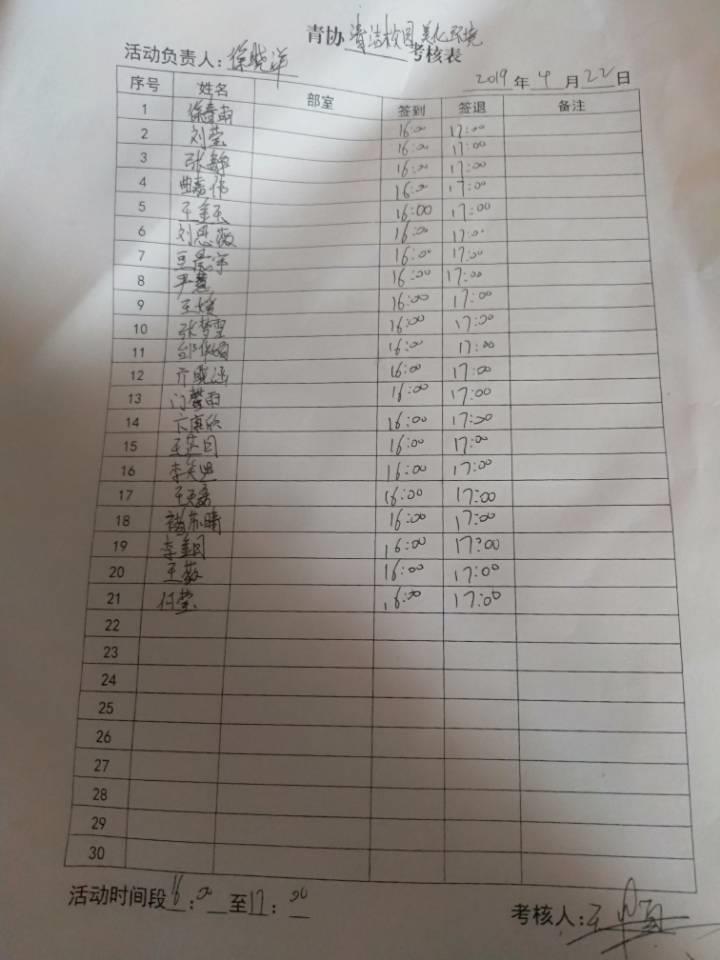 青协 清洁校园 美化环境 考核表
活动负责人：徐晓洋
2019 年 4 月 22 日
序号 姓名 部室 签到 签退 备注
1 16:00 17:00
2 刘莹 16:00 17:00
3 张静 16:00 17:00
4 16:00 17:00
5 16:00 17:00
6 刘思薇 16:00 17:00
7 16:00 17:00
8 尹慧 16:00 17:00
9 16:00 17:00
10 张梦雪 16:00 17:00
11 16:00 17:00
12 亓晓涵 16:00 17:00
13 门馨雨 16:00 17:00
14 16:00 17:00
15 16:00 17:00
16 16:00 17:00
17 16:00 17:00
18 16:00 17:00
19 16:00 17:00
20 王薇 16:00 17:00
21 任莹 16:00 17:00
22
23
24
25
26
27
28
29
30
活动时间段 16：00 至 17：00
考核人：王